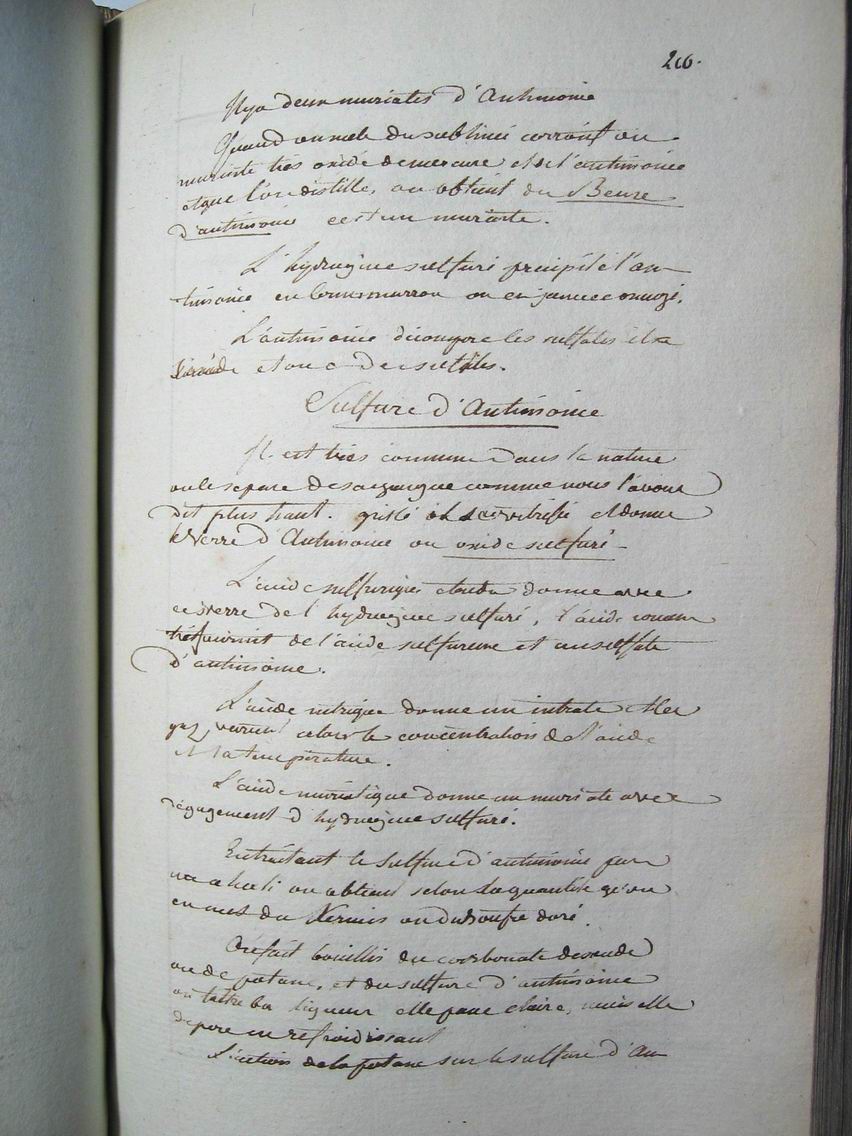 206.
Il y a deux muriates d'Antimoine
Quand on mele du sublimé corrosif ou
muriate très oxidé de mercure et de l'antimoine
et que l'on distille, on obtient du Beure
d'antimoine c'est un muriate.
L'hydrogène sulfuré précipite l'an-
timoine en brun marron ou en jaune orangé.
L'antimoine décompose les sulfates il se
et on a des sulfites.
Sulfure d'Antimoine
Il est très commun dans la nature
on le separe de sa gangue comme nous l'avons
dit plus haut. grillé il se vitrifie et donne
le verre d'Antimoine ou oxide sulfuré
L'acide sulfurique etendu donne avec
ce verre de l'hydrogène sulfuré, l'acide concen
tré fournit de l'acide sulfureux et un sulfate
d'antimoine.
L'acide nitrique donne un nitrate et les
gaz varient selon la concentration de l'acide
et la température.
L'acide muriatique donne un muriate avec
dégagement d'hydrogène sulfuré.
En traitant le sulfure d'antimoine par
un alkali on obtient selon la quantité qu'on
en met du Kermès ou du soufre doré.
On fait bouillir du carbonate de soude
ou de potasse, et du sulfure d'antimoine
on filtre la liqueur elle passe claire, mais elle
dépose en refroidissant
L'action de la potasse sur le sulfure d'An